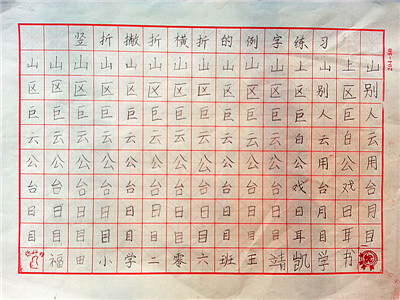 竖折撇折横折的例字练习
山山山山山山山山山山山上山上山
区区区区区区区区区区区区别区别
巨巨巨巨巨巨巨巨巨巨巨巨人巨人
云云云云云云云云云云云白云白云
公公公公公公公公公公公公用公用
台台台台台台台台台台台戏台戏台
日日日日日日日日日日日日月日月
目目目目目目目目目目目耳目耳目
福田小学二零六班王靖凯学书